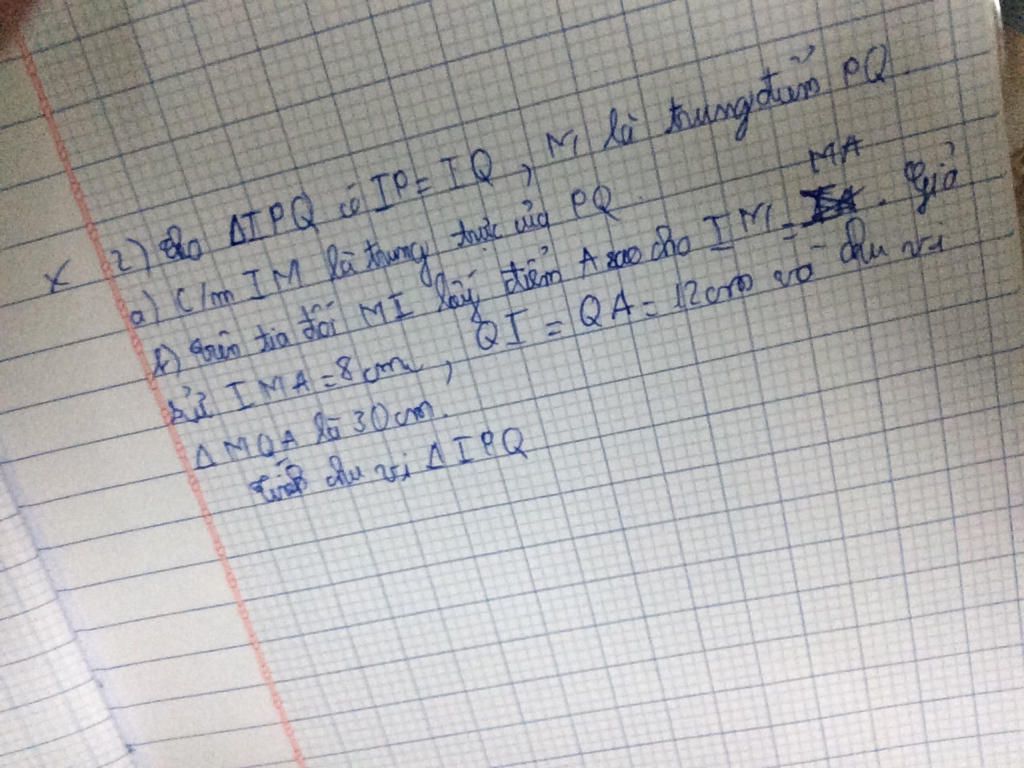 X 2) Cho ΔIPQ có IP = IQ, M là trung điểm PQ
a) C/m IM là trung trực của PQ.
b) Trên tia đối MI lấy điểm A sao cho IM = MA. Giả
sử IMA = 8cm, QI = QA = 12cm và chu vi
ΔMQA là 30cm.
Tính chu vi ΔIPQ